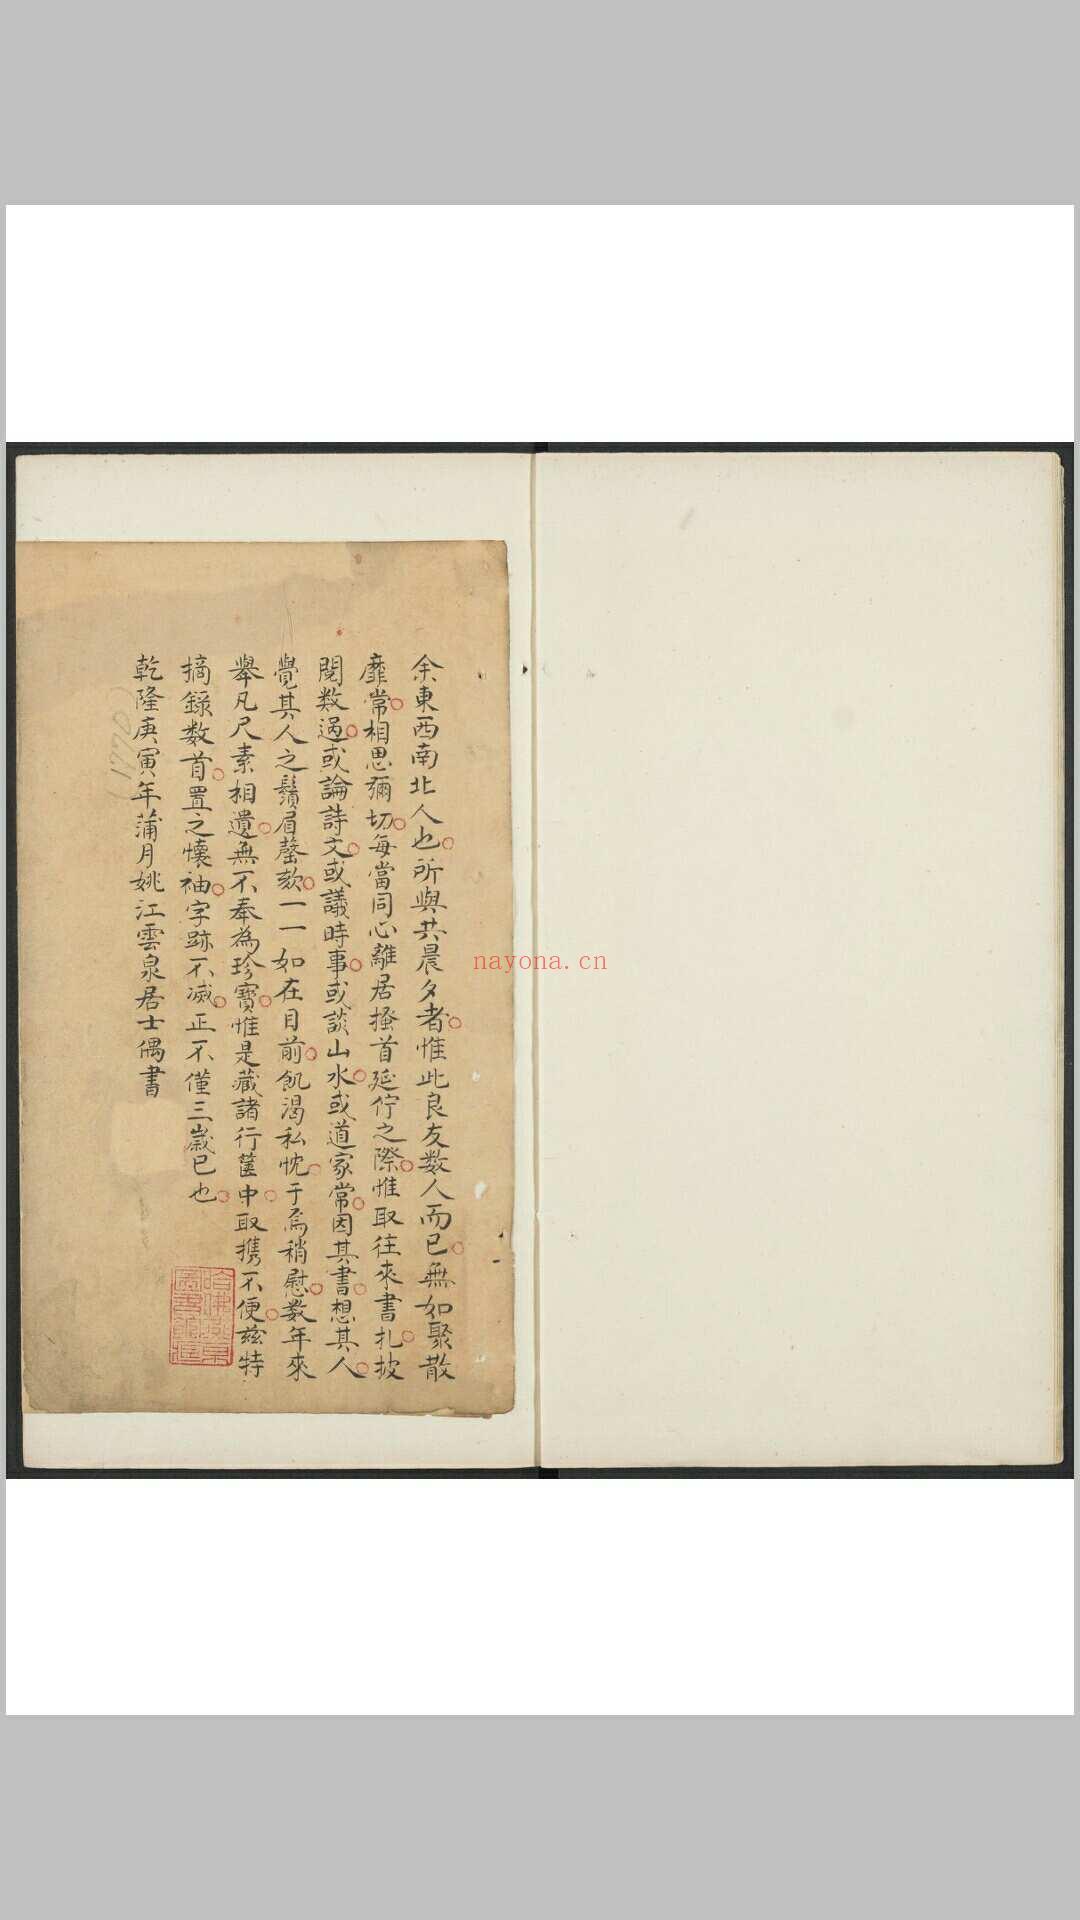 余東西南北人也所與共晨夕者惟此良友数人而已無如聚散
靡常相思彌切每當同心離居搔首延佇之際惟取往來書扎披
閱数過或論詩文或議時事或談山水或道家常因其書想其人
覺其人之鬚眉謦欬一一如在目前飢渴私忱于焉稍慰数年來
舉凡尺素相遺無不奉為珍寶惟是藏諸行篋中取携不便茲特
摘錄数首置之懷袖字跡不滅正不僅三歲已也
乾隆庚寅年蒲月姚江雲泉居士偶書
1770
哈佛燕京圖書館藏
nayona.cn